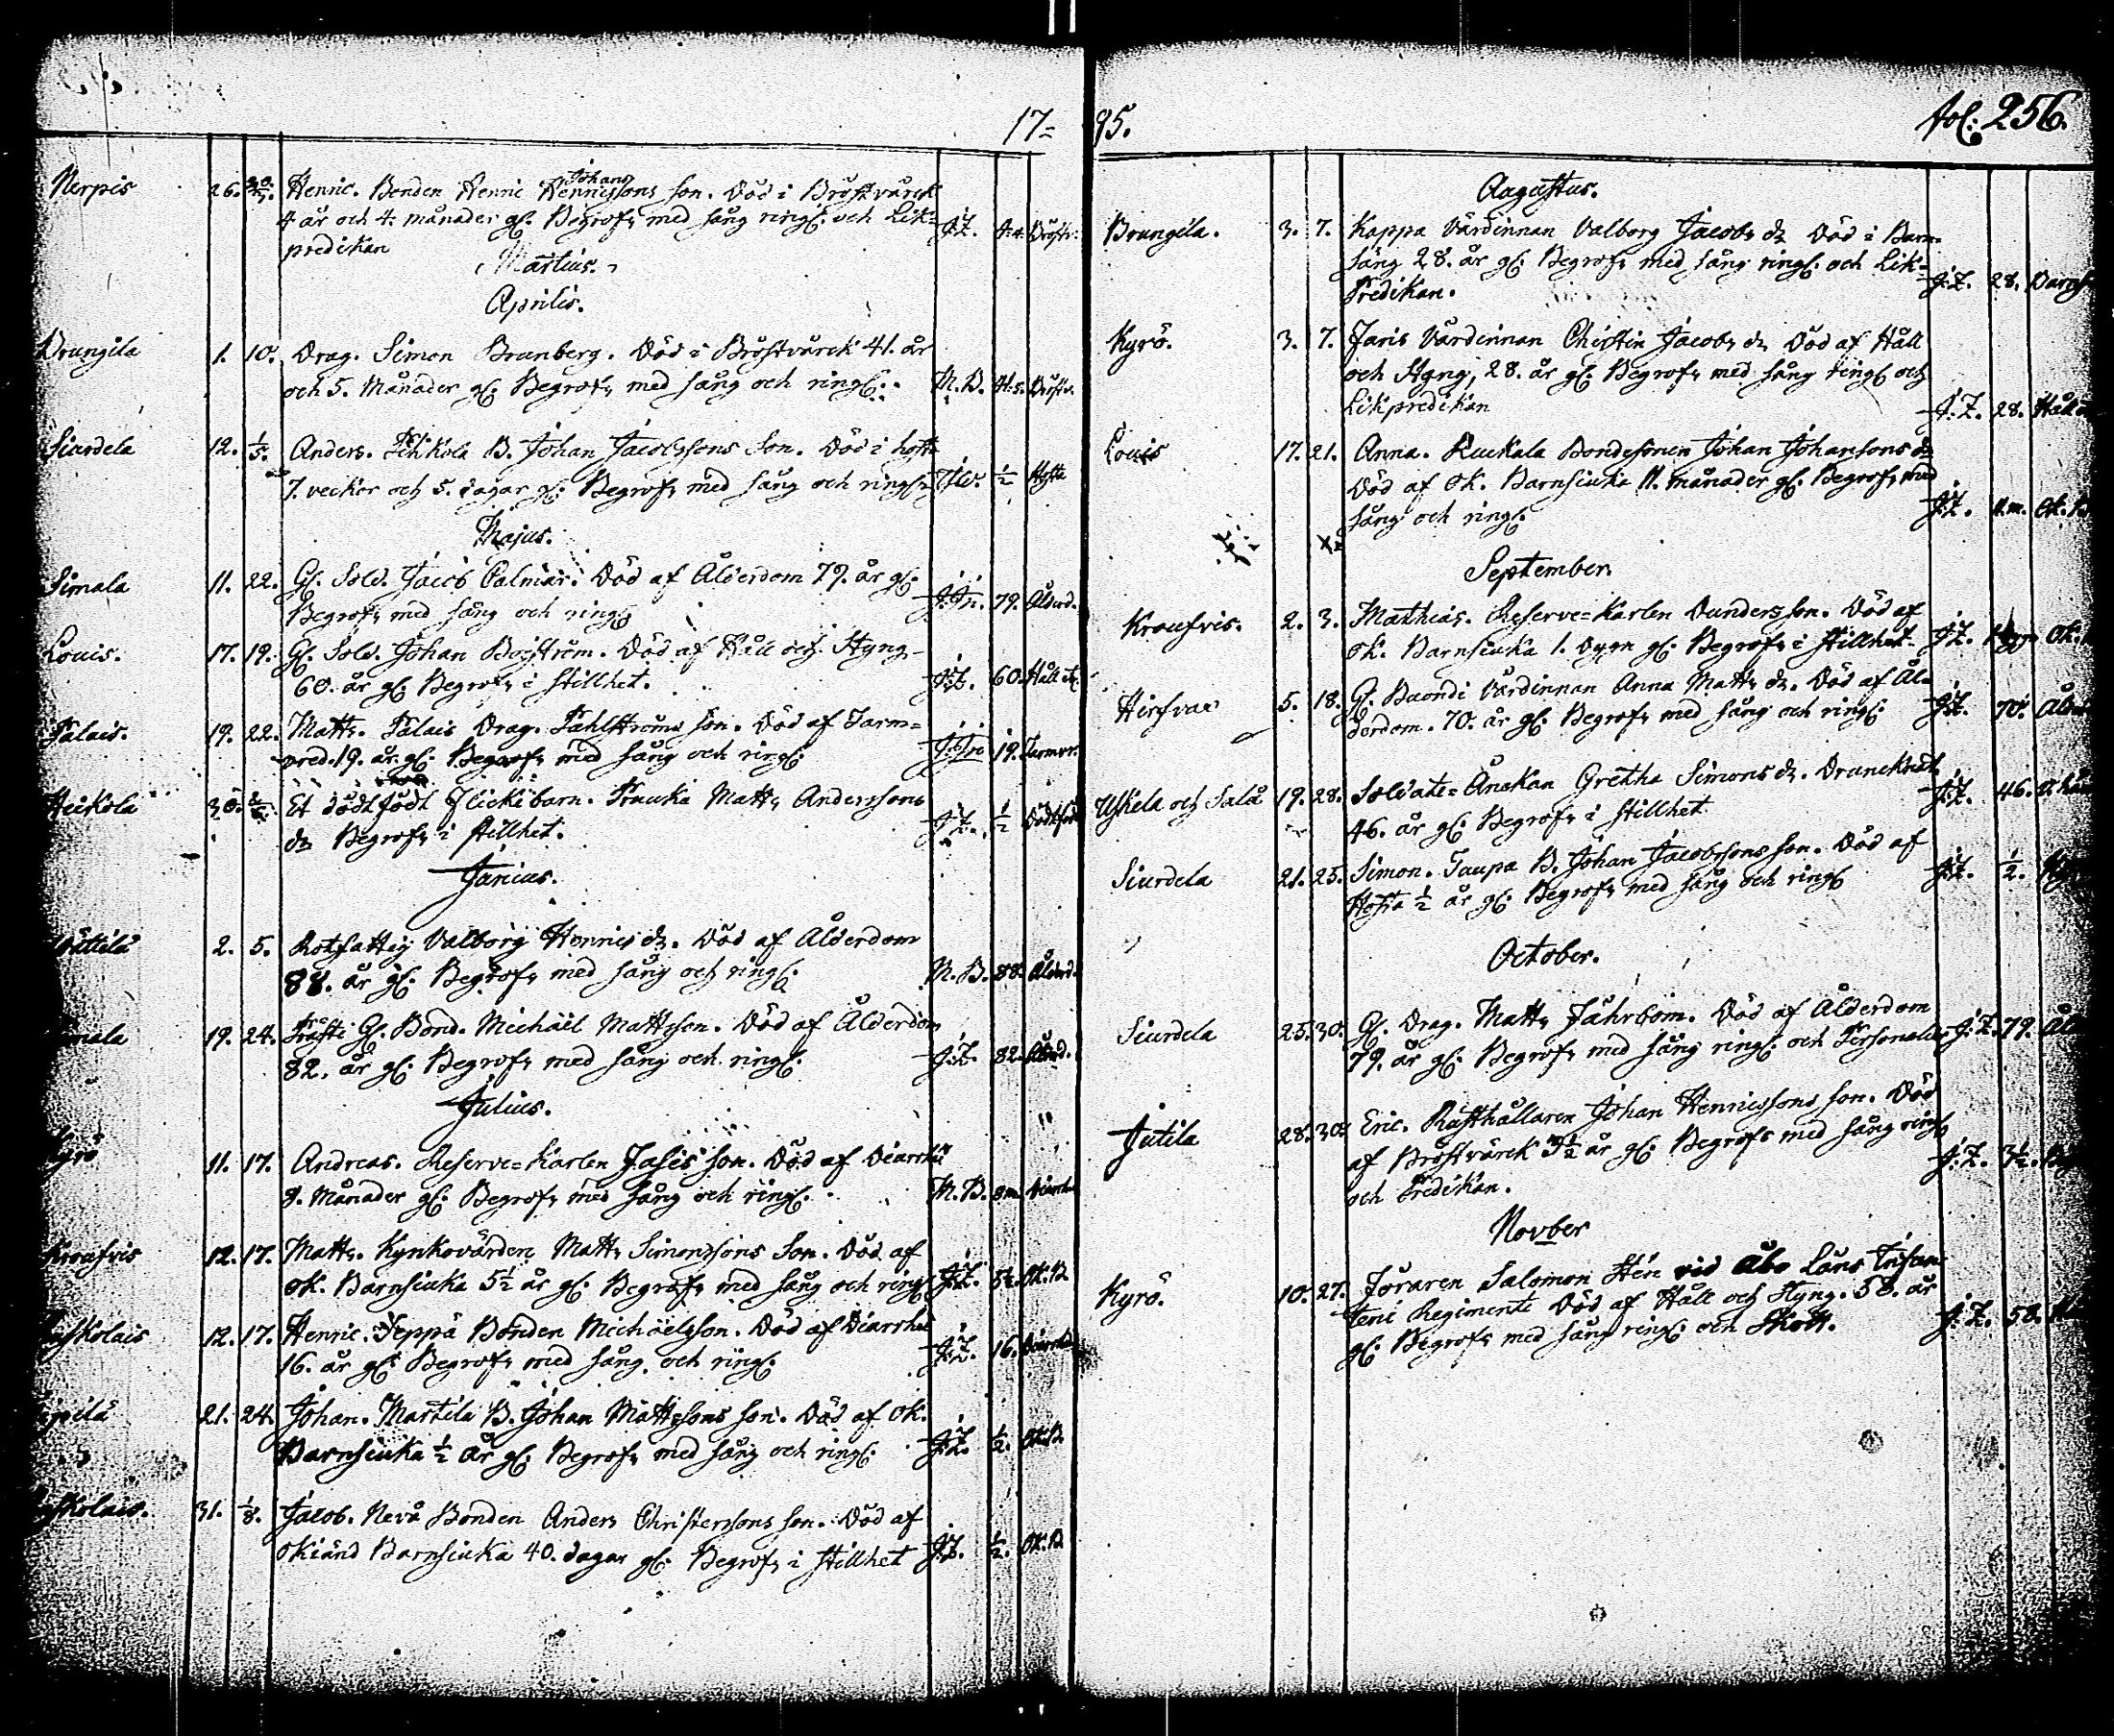 17= 95.
fol: 256.
Nerpis 26. Henric. Bonden Henric Henricssons son. Död i Bröstvärck
Johans
4 år och 4 månader gl. Begrofs med sång ringl: och Lik=
predikan J:Z. 4.4. Bröstv:
Martius.
Aprilis.
Brungila 1. 10. Drag. Simon Brunberg. Död i Bröstvärck 41. år
och 5. Månader gl: Begrofs med sång och ringl: M.B. 41.5. Bröstv.
Siurdela 12. 1/5. Anders. B. Johan Jacobssons Son. Död i hosta
7. veckor och 5. dagar gl: Begrofs med sång och ringl: 1/2 Hosta
Majus.
Simala 11. 22. Gl. Sold. Jacob Palmar. Död af Ålderdom 79. år gl:
Begrofs med sång och ringl: 79. Ålderd.
Louis. 17. 19. Gl. Sold. Johan Boström. Död af Håll och Styng
60. år gl: Begrofs i stillhet. J:Z. 60. Håll etc
Palais. 19. 22. Matts. Palais Drag. Pahlströms son. Död af Tarm=
vred. 19. år gl: Begrofs med sång och ringl: 19. Tarmvr.
Heikola 30. Et dödt födt flickibarn. Matts Anderssons
dr Begrofs i stillhet. J:Z. 1/2 Dödtföd
Junius.
2. 5. Rotefattig Valborg Henrics dr. Död af Ålderdom
88. år gl: Begrofs med sång och ringl: M.B. 88. Ålderd.
19. 24. Gl. Bond. Michaël Mattsson. Död af Ålderdom
82. år gl: Begrofs med sång och ringl: J:Z. 82. Ålderd.
Julius.
Kyrö 11. 17. Andreas. Reserve=Karlen son. Död af Diarrhé
8. Månader gl: Begrofs med sång och ringl: M.B. 8m. Diarrhé
Kroufvis 12. 17. Matts. Kynkovärden Matts Simonssons Son. Död af
ok. Barnsiuka 5½ år gl: Begrofs med sång och ringl: J:Z. 5½. Ok. B.
12. 17. Henric. Seppä Bonden Michaëlsson. Död af Diarrhé
16. år gl: Begrofs med sång och ringl: J:Z. 16. Diarrhé
21. 24. Johan. Martila B. Johan Mattssons son. Död af ok.
Barnsiuka ½ år gl: Begrofs med sång och ringl: J:Z. ½. Ok. B.
31. 1/8. Jacob. Nevå Bonden Anders Christerssons son. Död af
okiänd Barnsiuka 40. dagar gl: Begrofs i stillhet J:Z. ½. Ok. B.
Augustus.
Brungila. 3. 7. Kappa Värdinnan Valborg Jacobs dr Död i Barn=
säng 28. år gl: Begrofs med sång ringl: och Lik=
Predikan. J:Z. 28. Barns
Kyrö. 3. 7. Jaris Värdinnan Christin Jacobs dr Död af Håll
och Styng, 28. år gl: Begrofs med sång ringl: och
Likpredikan J:Z. 28. Håll
Louis 17. 21. Anna. Ruckala Bondesonen Johan Johanssons dr
Död af ok. Barnsiuka 11. månader gl: Begrofs med
sång och ringl: J:Z. 11.m. Ok.
September
Kroufvis. 2. 3. Matthias. Reserve=Karlen Dunders son. Död af
ok. Barnsiuka 1. dygn gl: Begrofs i stillhet J:Z. Ok.
Hirfvas 5. 18. Gl. Baondi Värdinnan Anna Matts dr. Död af Ål=
derdom. 70. år gl: Begrofs med sång och ringl: J:Z. 70. Ål
Uskela och Salå 19. 28. Soldate=Änckan Gretha Simons dr. Drunknat
46. år gl: Begrofs i stillhet J:Z. 46.
Siurdela 21. 25. Simon. Taupa B. Johan Jacobssons son. Död af
Hosta ½ år gl: Begrofs med sång och ringl: J:Z. ½.
October.
Siurdela 25. 30. Gl. Drag. Matts Fährbom. Död af Ålderdom
79. år gl: Begrofs med sång ringl: och Personalier J:Z. 79. Ål
Jutila 28. 30. Eric. Rusthållaren Johan Henricssons son. Död
af Bröstvärck 3½ år gl: Begrofs med sång ringl:
och Predikan. J:Z. 3½.
Novber
Kyrö. 10. 27. Föraren Salomon Stén vid Åbo Läns Infan=
teri Regimente Död af Håll och Styng. 58. år
gl: Begrofs med sång ringl: och Skott. J:Z. 58.